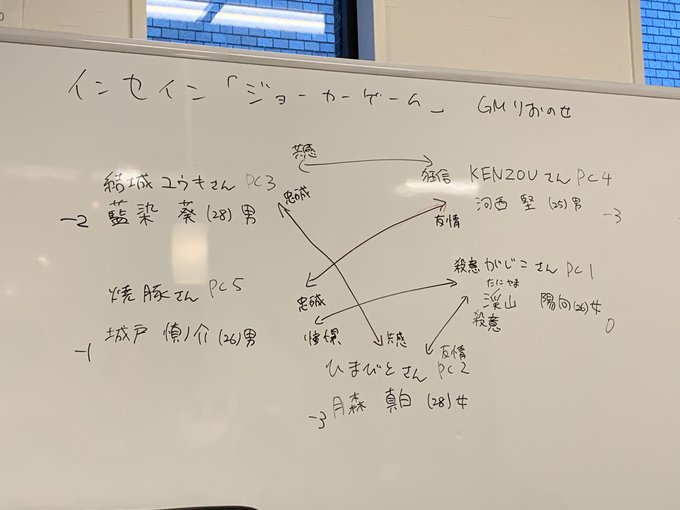 インセイン「ジョーカーゲーム」 GMりおのせ
共感
狂信 KENZOUさん PC4
河西 堅 (25) 男 -3
友情
結城ユウキさん PC3
忠誠
-2 藍染 葵 (28) 男
殺意 がじこさん PC1
たにやま
渓山 陽向 (26) 女
殺意 0
焼豚さん PC5
忠誠
-1 城戸 慎ノ介 (26) 男
憧憬 共感 友情
ひまびとさん PC2
-3 月森 真白 (28) 女